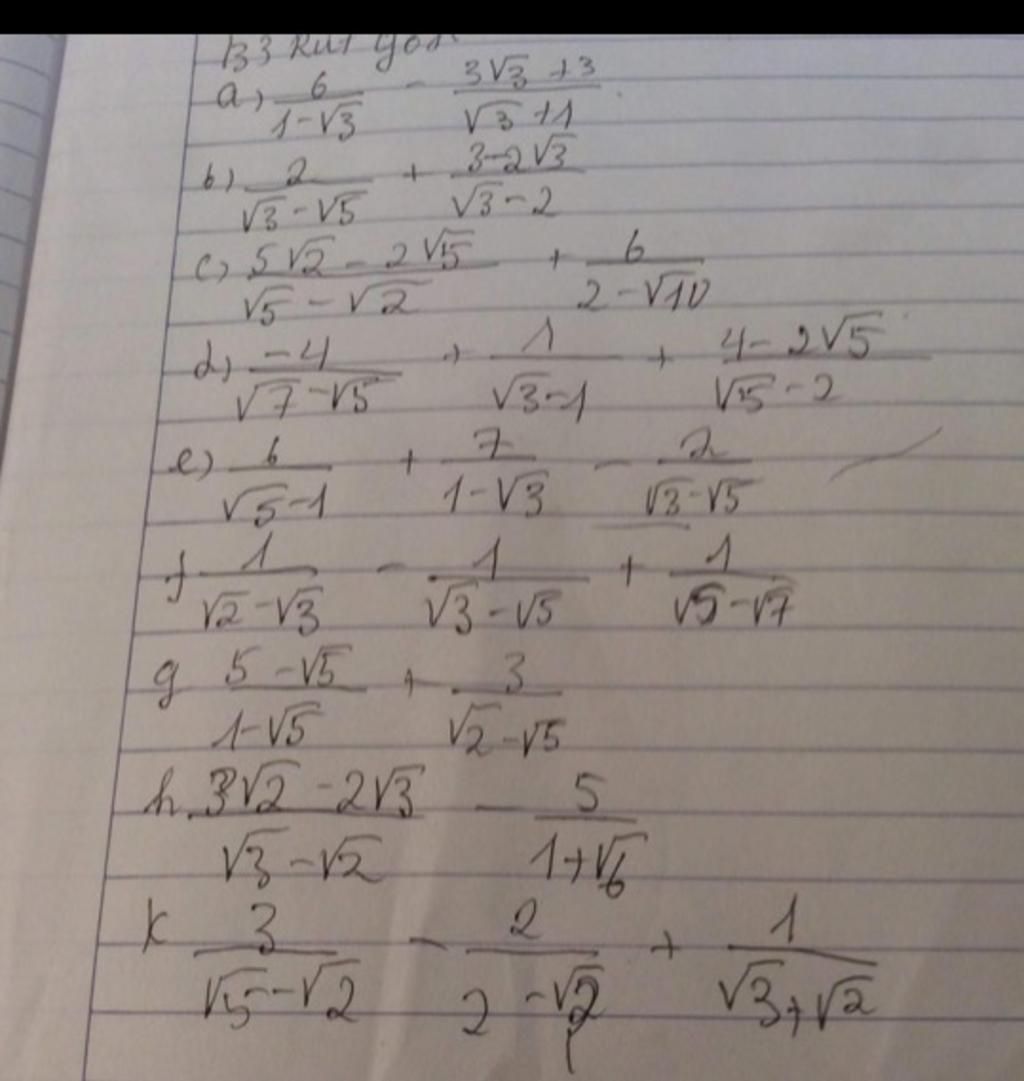 B3 Rút gọn
a) 6/(1-√3) - (3√3+3)/(√3+1)
b) 2/(√3-√5) + (3-2√3)/(√3-2)
c) (5√2-2√5)/(√5-√2) + 6/(2-√10)
d) -4/(√7-√5) + 1/(√3-1) + (4-2√5)/(√5-2)
e) 6/(√5-1) + 7/(1-√3) - 2/(√3-√5)
f 1/(√2-√3) - 1/(√3-√5) + 1/(√5-√7)
g (5-√5)/(1-√5) + 3/(√2-√5)
h. (3√2-2√3)/(√3-√2) - 5/(1+√6)
k 3/(√5-√2) - 2/(2-√2) + 1/(√3+√2)